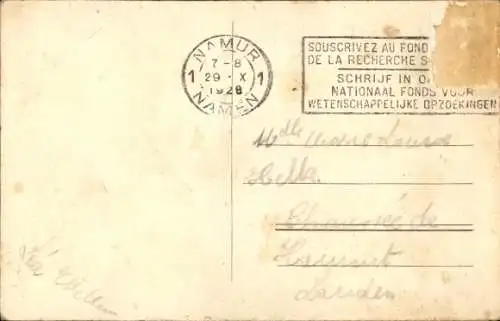 NAMUR
7-8
1 29 X 1
1928
NAMEN
SOUSCRIVEZ AU FOND
DE LA RECHERCHE S
SCHRIJF IN O
NATIONAAL FONDS VOOR
WETENSCHAPPELIJKE OPZOEKINGEN
Mdlle
Chaussée de
Hannut
Landen
Léa